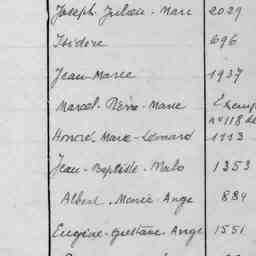 Joseph-Julien-Marc 2029
Isidore 696
Jean-Marie 1937
Marcel-Pierre-Marie
n° 118 de
Honoré-Marc-Léonard 1113
Jean-Baptiste-Malo 1353
Albert-Marie-Ange 884
Eugène-Gustave-Ange 1551